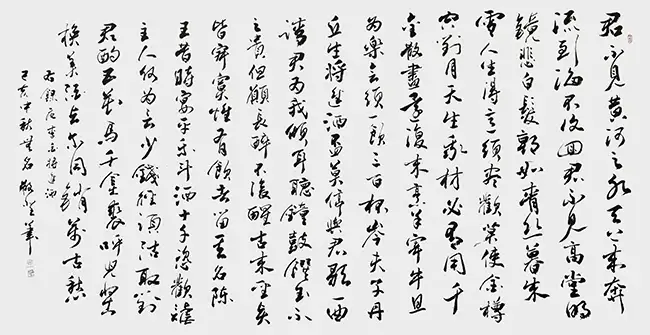 君不見黃河之水天上來奔
流到海不復回君不見高堂明
鏡悲白髮朝如青絲暮成
雪人生得意須盡歡莫使金樽
空對月天生我材必有用千
金散盡還復來烹羊宰牛且
為樂會須一飲三百杯岑夫子丹
丘生將進酒杯莫停與君歌一曲
請君為我傾耳聽鐘鼓饌玉不
足貴但願長醉不復醒古來聖賢
皆寂寞惟有飲者留其名陳
王昔時宴平樂斗酒十千恣歡謔
主人何為言少錢徑須沽取對
君酌五花馬千金裘呼兒將出
換美酒與爾同銷萬古愁
右錄唐李白將進酒
己亥中秋